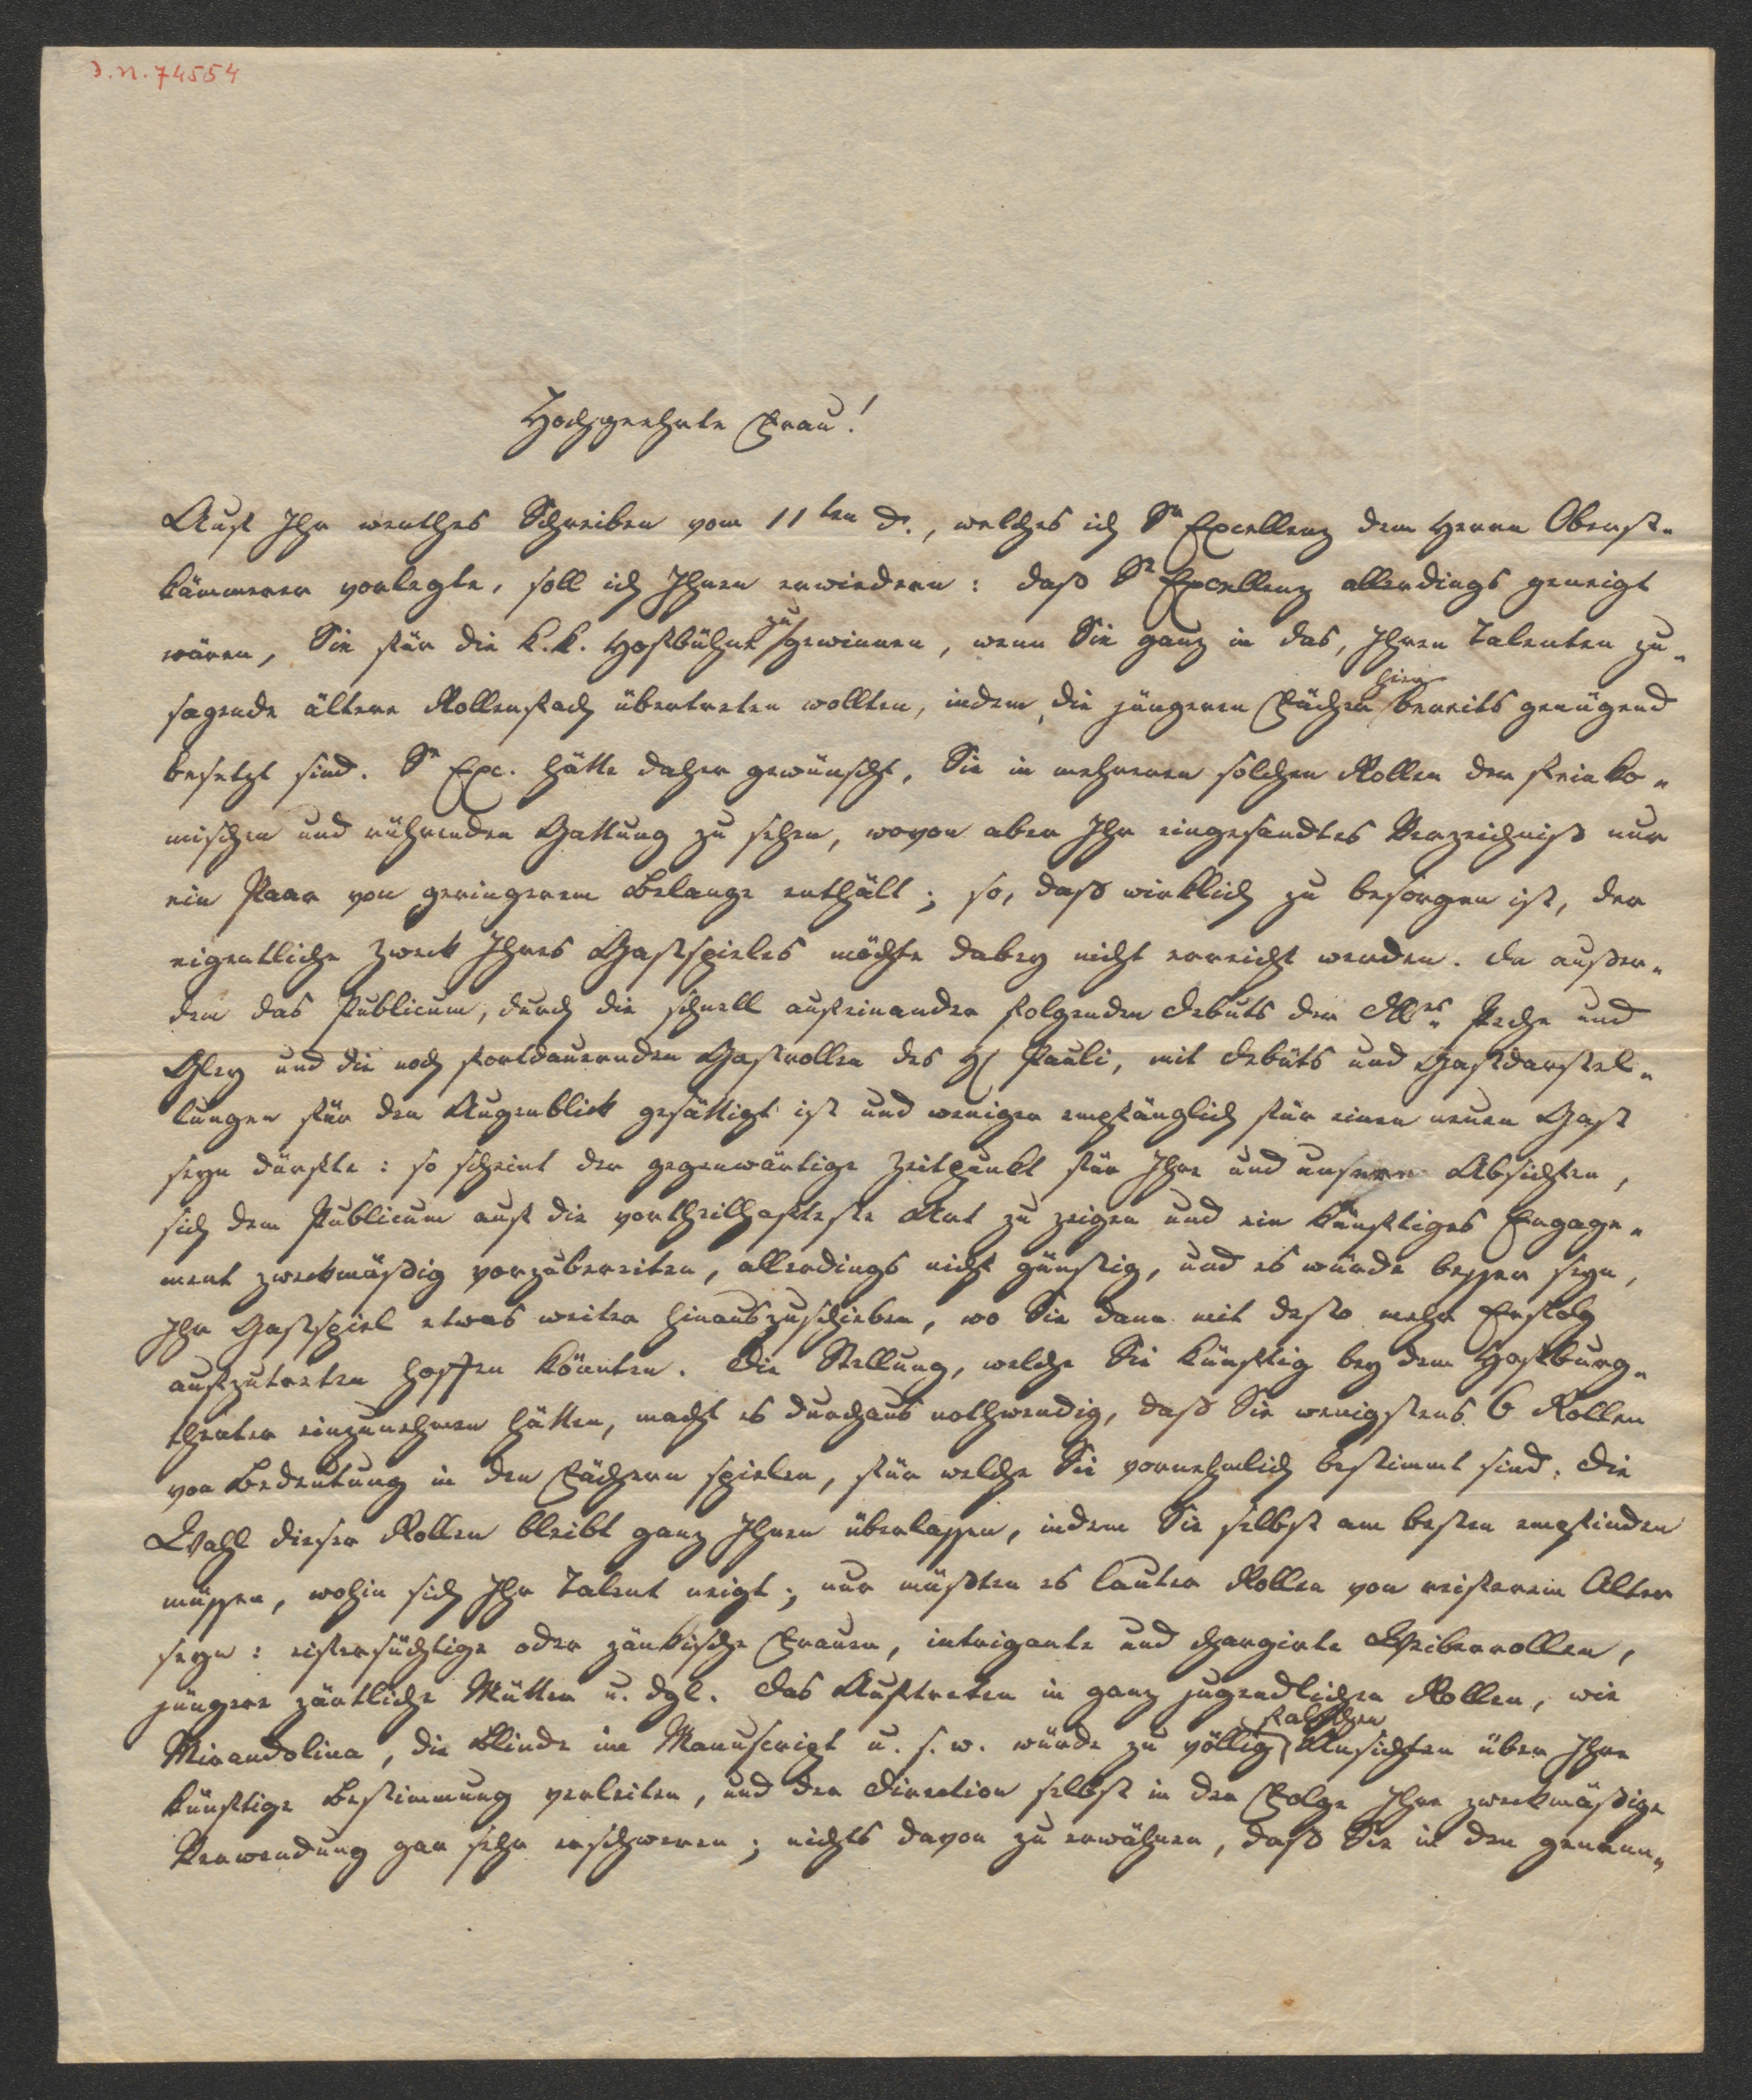 J.N. 74554
Hochgeehrte Frau!
Auf Ihr werthes Schreiben vom 11ten d., welches ich Sr Excellenz dem Herrn Oberst-
kämmerer vorlegte, soll ich Ihnen erwiedern: daß Sr Excellenz allerdings geneigt
wären, Sie für die k.k. Hofbühne zu gewinnen, wenn Sie ganz in das, Ihren Talenten zu-
sagende ältere Rollenfach übertreten wollten, indem die jüngeren Fächer hier bereits genügend
besetzt sind. Sr Exc. hätte daher gewünscht, Sie in mehreren solchen Rollen der feinko-
mischen und rührenden Gattung zu sehen, wovon aber Ihr eingesandtes Verzeichniß nur
ein Paar von geringerem Belange enthält; so, daß wirklich zu besorgen ist, der
eigentliche Zweck Ihres Gastspieles möchte dabey nicht erreicht werden. Da außer-
dem das Publicum, durch die schnell aufeinander folgenden Debuts der Dlles Peche und
Gley und die noch fortdauernden Gastrollen des H Pauli, mit Debüts und Gastdarstel-
lungen für den Augenblick gesättigt ist und weniger empfänglich für einen neuen Gast
seyn dürfte: so scheint der gegenwärtige Zeitpunkt für Ihre und unsere Absichten,
sich dem Publicum auf die vortheilhafteste Art zu zeigen und ein künftiges Engage-
ment zweckmäßig vorzubereiten, allerdings nicht günstig, und es würde besser seyn,
Ihr Gastspiel etwas weiter hinauszuschieben, wo Sie dann mit desto mehr Erfolg
aufzutreten hoffen könnten. Die Stellung, welche Sie künftig bey dem Hofburg-
theater einzunehmen hätten, macht es durchaus nothwendig, daß Sie wenigstens 6 Rollen
von Bedeutung in den Fächern spielen, für welche Sie vornehmlich bestimmt sind. Die
Wahl dieser Rollen bleibt ganz Ihnen überlassen, indem Sie selbst am besten empfinden
müssen, wohin sich Ihr Talent neigt; nur müßten es lauter Rollen von reiferem Alter
seyn: eifersüchtige oder zänkische Frauen, intrigante und chargirte Weiberrollen,
jüngere zärtliche Mütter u. dgl. Das Auftreten in ganz jugendlichen Rollen, wie
Mirandolina, die Blinde im Manuscript u. s. w. würde zu völlig falschen Ansichten über Ihre
künftige Bestimmung verleiten, und der Direction selbst in der Folge Ihre zweckmäßige
Verwendung gar sehr erschweren; nichts davon zu erwähnen, daß Sie in den genann-